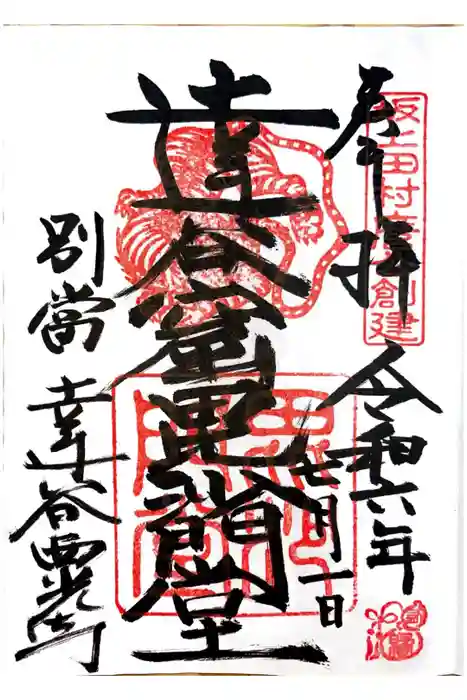 坂上田村 創建
奉拝
令和六年
七月一日
達谷窟毘沙門堂
別當
達谷西光寺